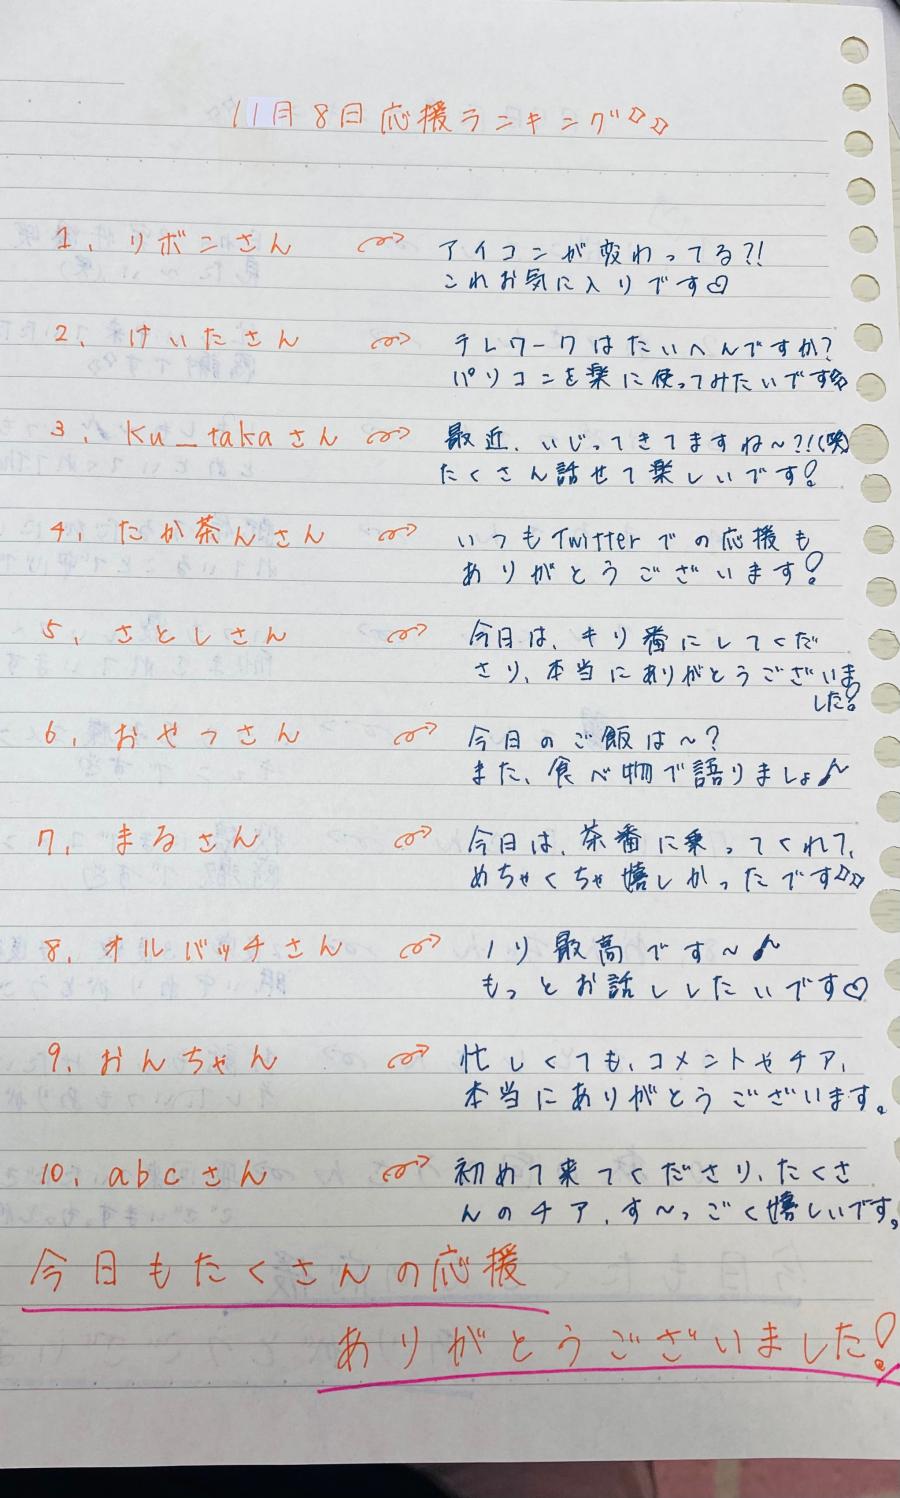 11月8日応援ランキング♪♪
1、リボンさん
アイコンが変わってる?!
これお気に入りです♡
2、けいたさん
テレワークはたいへんですか?
パソコンを楽に使ってみたいです☆
3、Ku_takaさん
最近、いじってきてますね〜?!(笑)
たくさん話せて楽しいです!
4、たか茶んさん
いつもTwitterでの応援も
ありがとうございます!
5、さとしさん
今日は、キリ番にしてくだ
さり、本当にありがとうございま
した!
6、おやっさん
今日のご飯は〜?
また、食べ物で語りましょ♪
7、まるさん
今日は、茶番に乗ってくれて、
めちゃくちゃ嬉しかったです♪♪
8、オルバッチさん
ノリ最高です〜♪
もっとお話ししたいです♡
9、おんちゃん
忙しくても、コメントやチア、
本当にありがとうございます。
10、abcさん
初めて来てくださり、たくさ
んのチア、す〜っごく嬉しいです。
今日もたくさんの応援
ありがとうございました!